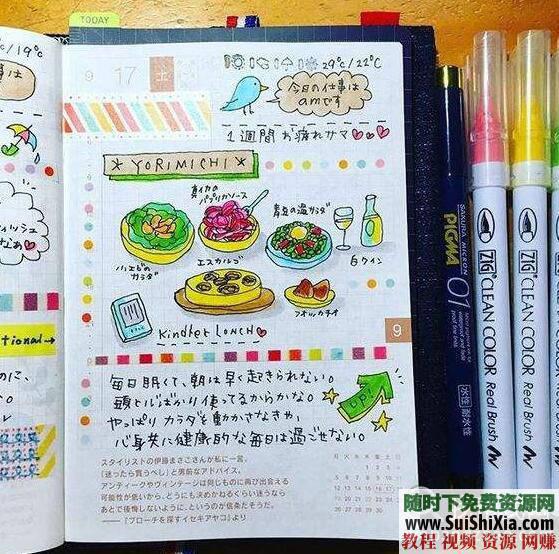 TODAY
9 17 土
29℃/22℃
今日の仕事は
amです
1週間 お疲れサマ
YORIMICHI
真イカの
パプリカソース
青豆の温サラダ
エスカルゴ
白ワイン
サラダ
フォカッチャ
LUNCH
9
毎日眠くて、朝は早く起きられない。
頭ばかり使ってるからかな。
やっぱり カラダを動かさなきゃ
心身共に健康的な毎日は過ごせない。
UP!
スタイリストの伊藤まさこさんが私に一言。
「迷ったら買うべし」と男前なアドバイス。
アンティークやヴィンテージは同じものに再び出会える
可能性が低いから、どうにも決めかねるくらい迷うなら
あとで後悔しないように、というのが信条だそう。
『ブローチを探すイセキアヤコ』より
月 火 水 木 金 土 日
/19℃
は
なぁ
tional→
に、
SAKURA MICRON
PIGMA 01
水性 耐水性
ZIG CLEAN COLOR Real Brush
ZIG CLEAN COLOR Real Brush
随时下免费资源网
www.SuiShiXia.com
教程 视频 资源 网赚